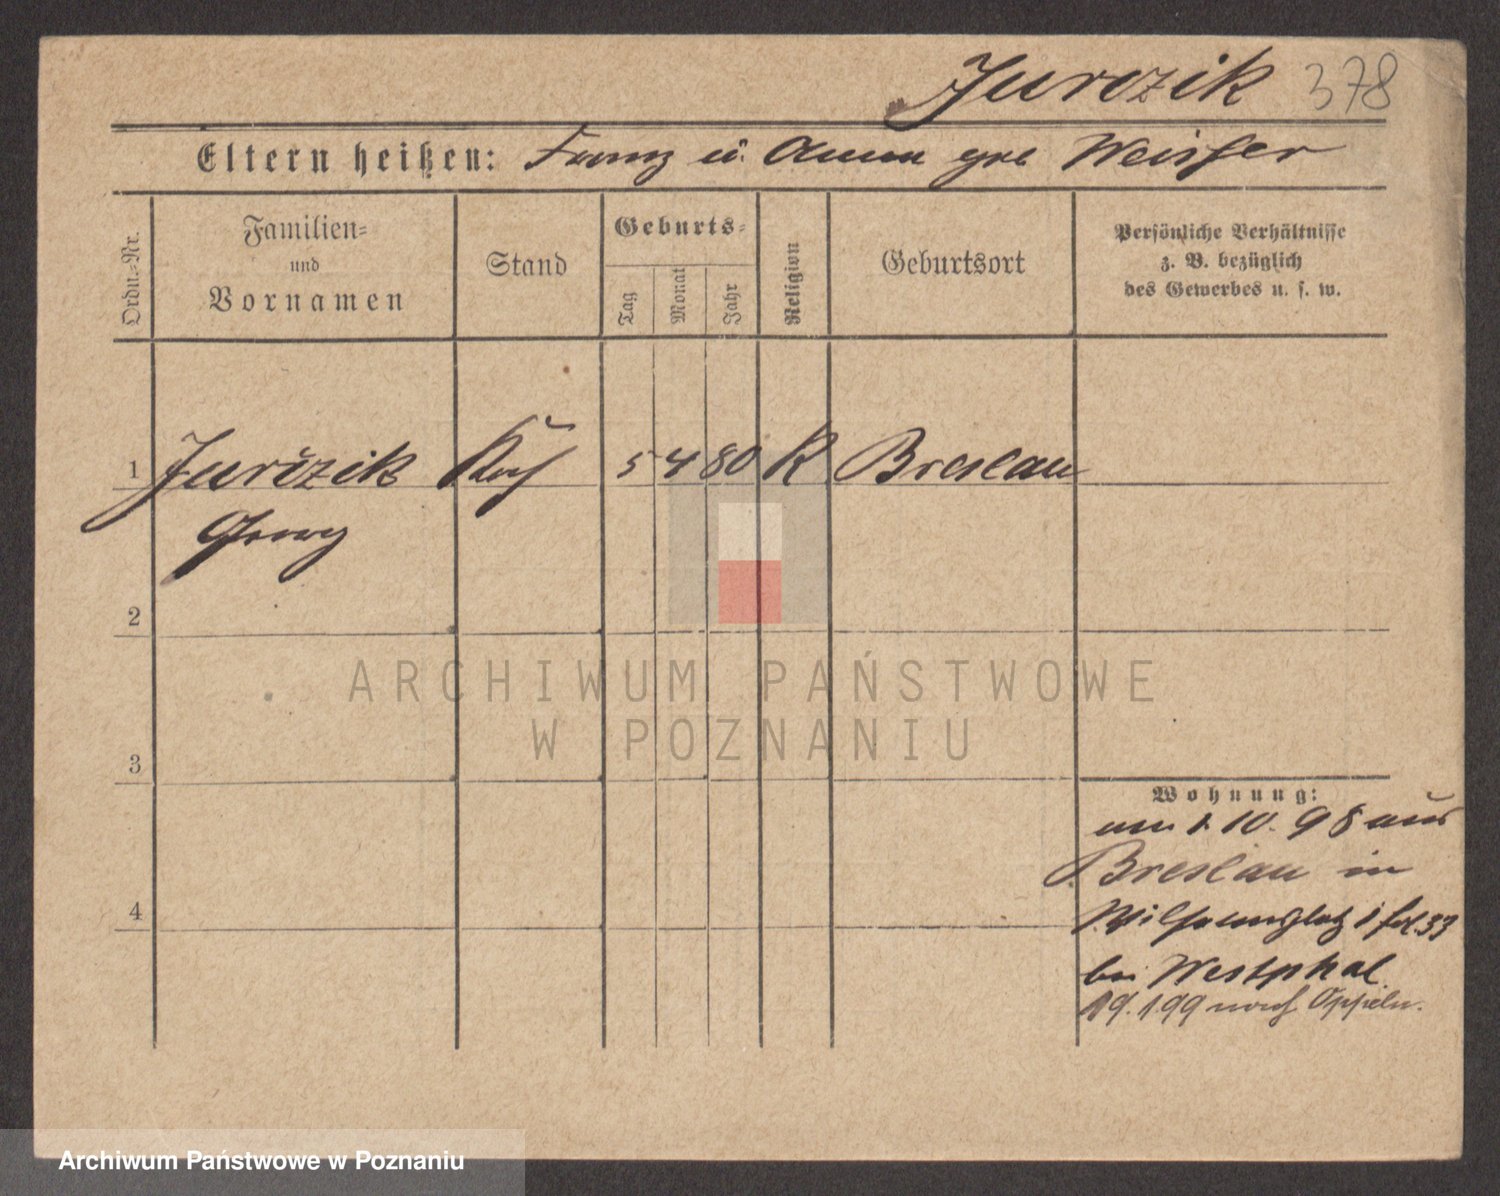 Jurczik 378
Eltern heißen: Franz u. Anna geb Weisser
Ordn.-Nr.
Familien-
und
Vornamen
Stand
Geburts-
Tag
Monat
Jahr
Religion
Geburtsort
Persönliche Verhältnisse
z. B. bezüglich
des Gewerbes u. s. w.
1 Jurczik Koch 5 4 80 K Breslau
Georg
2
ARCHIWUM PAŃSTWOWE
W POZNANIU
3
Wohnung:
am 1. 10. 98 aus
Breslau in
Wilhelmsplatz
bei Westphal.
19. 1 99 nach Oppeln.
4
Archiwum Państwowe w Poznaniu